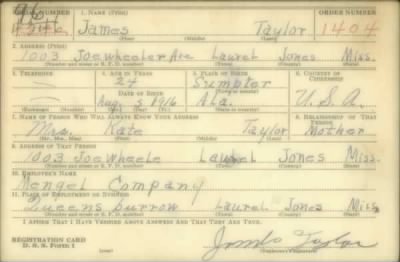 SERIAL NUMBER 1. NAME (Print) ORDER NUMBER
James Taylor 1404
(First) (Middle) (Last)
2. ADDRESS (Print)
1003 Joe wheeler Ave Laurel Jones Miss.
(Number and street or R. F. D. number) (Town) (County) (State)
3. TELEPHONE 4. AGE IN YEARS 5. PLACE OF BIRTH 6. COUNTRY OF CITIZENSHIP
24 Sumpter
DATE OF BIRTH (Town or county)
Aug. 5 1916 Ala. U.S.A.
(Exchange) (Number) (Mo.) (Day) (Yr.) (State or country)
7. NAME OF PERSON WHO WILL ALWAYS KNOW YOUR ADDRESS 8. RELATIONSHIP OF THAT PERSON
Mrs. Kate Taylor Mother
(Mr., Mrs., Miss) (First) (Middle) (Last)
9. ADDRESS OF THAT PERSON
1003 Joe Wheele Laurel Jones Miss.
(Number and street or R. F. D. number) (Town) (County) (State)
10. EMPLOYER'S NAME
Mengel Company
11. PLACE OF EMPLOYMENT OR BUSINESS
Queens burrow Laurel Jones Miss.
(Number and street or R. F. D. number) (Town) (County) (State)
I AFFIRM THAT I HAVE VERIFIED ABOVE ANSWERS AND THAT THEY ARE TRUE.
REGISTRATION CARD
D. S. S. Form 1 (over) Taylor
(Registrant's signature)